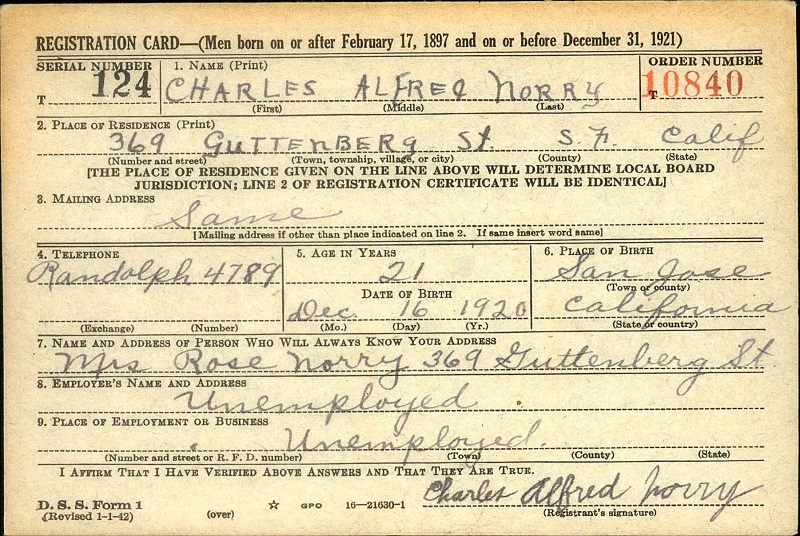 REGISTRATION CARD—(Men born on or after February 17, 1897 and on or before December 31, 1921)
SERIAL NUMBER 1. NAME (Print) ORDER NUMBER
T 124 CHARLES ALFRED NORRY T 10840
(First) (Middle) (Last)
2. PLACE OF RESIDENCE (Print)
369 GUTTENBERG St. S.F. Calif
(Number and street) (Town, township, village, or city) (County) (State)
[THE PLACE OF RESIDENCE GIVEN ON THE LINE ABOVE WILL DETERMINE LOCAL BOARD
JURISDICTION; LINE 2 OF REGISTRATION CERTIFICATE WILL BE IDENTICAL]
3. MAILING ADDRESS
Same
[Mailing address if other than place indicated on line 2. If same insert word same]
4. TELEPHONE 5. AGE IN YEARS 6. PLACE OF BIRTH
Randolph 4789 21 San Jose
DATE OF BIRTH (Town or county)
Dec. 16 1920 California
(Exchange) (Number) (Mo.) (Day) (Yr.) (State or country)
7. NAME AND ADDRESS OF PERSON WHO WILL ALWAYS KNOW YOUR ADDRESS
Mrs Rose Norry 369 Guttenberg St.
8. EMPLOYER'S NAME AND ADDRESS
Unemployed
9. PLACE OF EMPLOYMENT OR BUSINESS
Unemployed.
(Number and street or R. F. D. number) (Town) (County) (State)
I AFFIRM THAT I HAVE VERIFIED ABOVE ANSWERS AND THAT THEY ARE TRUE.
Charles Alfred Norry
D. S. S. Form 1
(Revised 1-1-42) (over) ☆ GPO 16—21630-1 (Registrant's signature)